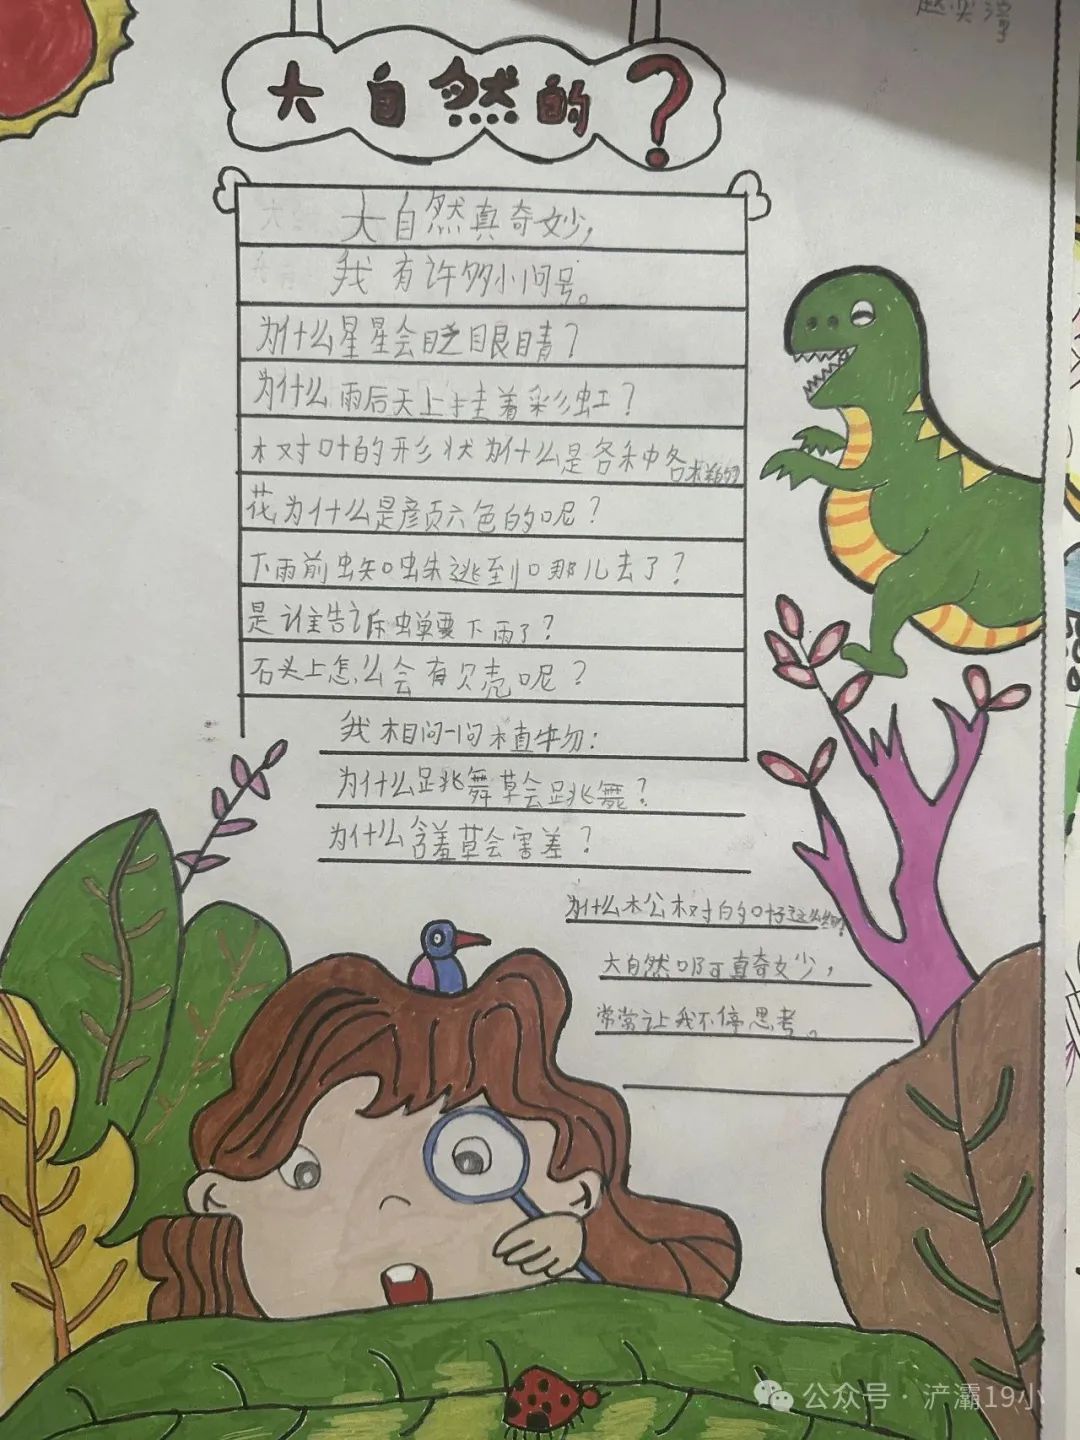 赵奕淳
大自然的?
大自然真奇妙,
我有许多小问号。
为什么星星会眨眼睛?
为什么雨后天上挂着彩虹?
树叶的形状为什么是各种各样的
花为什么是颜六色的呢?
下雨前蜘蛛逃到哪儿去了?
是谁告诉蝉要下雨了?
石头上怎么会有贝壳呢?
我想问一问植物:
为什么跳舞草会跳舞?
为什么含羞草会害羞?
为什么松树的叶子这么细?
大自然啊真奇妙,
常常让我不停思考。
公众号·浐灞19小